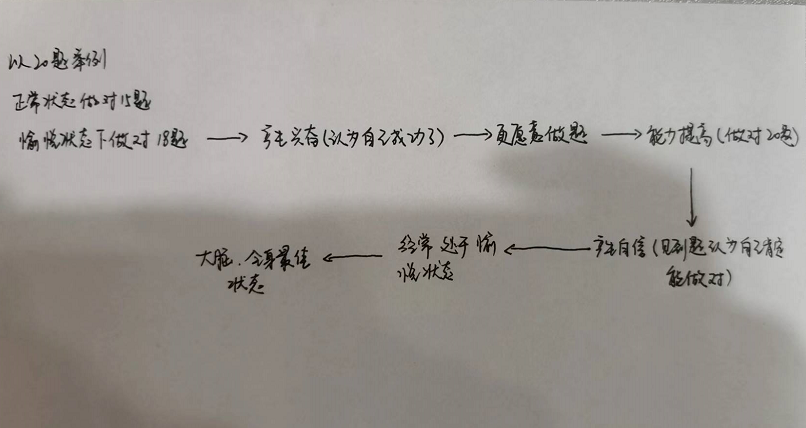 以20题举例
正常状态做对15题
愉悦状态下做对18题 → 产生兴奋(认为自己成功了) → 更愿意做题 → 能力提高(做对20题)
大脑、全身最佳 ← 经常处于愉 ← 产生自信(见到题认为自己肯定
状态 悦状态 能做对)